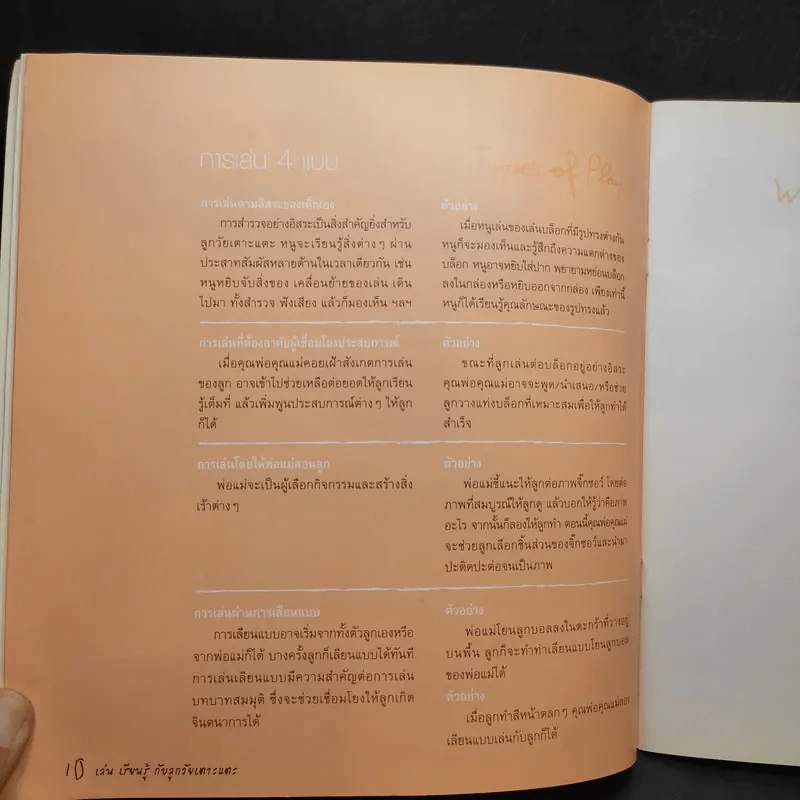 การเล่น 4 แบบ
Types of Play
การเล่นตามอิสระของเด็กเอง
การสำรวจอย่างอิสระเป็นสิ่งสำคัญยิ่งสำหรับ
ลูกวัยเตาะแตะ หนูจะเรียนรู้สิ่งต่างๆ ผ่าน
ประสาทสัมผัสหลายด้านในเวลาเดียวกัน เช่น
หนูหยิบจับสิ่งของ เคลื่อนย้ายของเล่น เดิน
ไปมา ทั้งสำรวจ ฟังเสียง แล้วก็มองเห็น ฯลฯ
ตัวอย่าง
เมื่อหนูเล่นของเล่นบล็อกที่มีรูปทรงต่างกัน
หนูก็จะมองเห็นและรู้สึกถึงความแตกต่างของ
บล็อก หนูอาจหยิบใส่ปาก พยายามหย่อนบล็อก
ลงในกล่องหรือหยิบออกจากกล่อง เพียงเท่านี้
หนูก็ได้เรียนรู้คุณลักษณะของรูปทรงแล้ว
การเล่นที่ต้องอาศัยผู้เชื่อมโยงประสบการณ์
เมื่อคุณพ่อคุณแม่คอยเฝ้าสังเกตการเล่น
ของลูก อาจเข้าไปช่วยเหลือต่อยอดให้ลูกเรียน
รู้เต็มที่ แล้วเพิ่มพูนประสบการณ์ต่างๆ ให้ลูก
ก็ได้
ตัวอย่าง
ขณะที่ลูกเล่นต่อบล็อกอยู่อย่างอิสระ
คุณพ่อคุณแม่อาจจะพูด/นำเสนอ/หรือช่วย
ลูกวางแท่งบล็อกที่เหมาะสมเพื่อให้ลูกทำได้
สำเร็จ
การเล่นโดยให้พ่อแม่สอนลูก
พ่อแม่จะเป็นผู้เลือกกิจกรรมและสร้างสิ่ง
เร้าต่างๆ
ตัวอย่าง
พ่อแม่ชี้แนะให้ลูกต่อภาพจิ๊กซอว์ โดยต่อ
ภาพที่สมบูรณ์ให้ลูกดู แล้วบอกให้รู้ว่าคือภาพ
อะไร จากนั้นก็ลองให้ลูกทำ ตอนนี้คุณพ่อคุณแม่
จะช่วยลูกเลือกชิ้นส่วนของจิ๊กซอว์และนำมา
ปะติดปะต่อจนเป็นภาพ
การเล่นผ่านการเลียนแบบ
การเลียนแบบอาจเริ่มจากทั้งตัวลูกเองหรือ
จากพ่อแม่ก็ได้ บางครั้งลูกก็เลียนแบบได้ทันที
การเล่นเลียนแบบมีความสำคัญต่อการเล่น
บทบาทสมมุติ ซึ่งจะช่วยเชื่อมโยงให้ลูกเกิด
จินตนาการได้
ตัวอย่าง
พ่อแม่โยนลูกบอลลงในตะกร้าที่วางอยู่
บนพื้น ลูกก็จะทำท่าเลียนแบบโยนลูกบอล
ของพ่อแม่ได้
ตัวอย่าง
เมื่อลูกทำสีหน้าตลกๆ คุณพ่อคุณแม่ลอง
เลียนแบบเล่นกับลูกก็ได้
10 เล่น เรียนรู้ กับลูกวัยเตาะแตะ
W